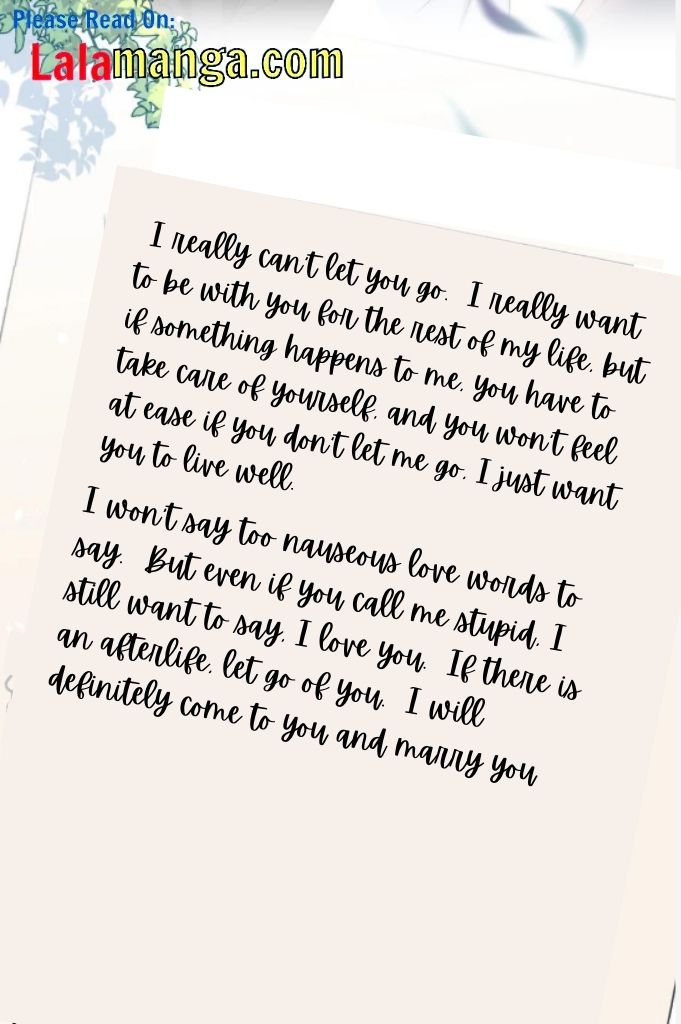 Please Read On:
Lalamanga.com
I really can't let you go. I really want
to be with you for the rest of my life, but
if something happens to me, you have to
take care of yourself, and you won't feel
at ease if you don't let me go, I just want
you to live well.
I won't say too nauseous love words to
say. But even if you call me stupid, I
still want to say, I love you. If there is
an afterlife, let go of you. I will
definitely come to you and marry you